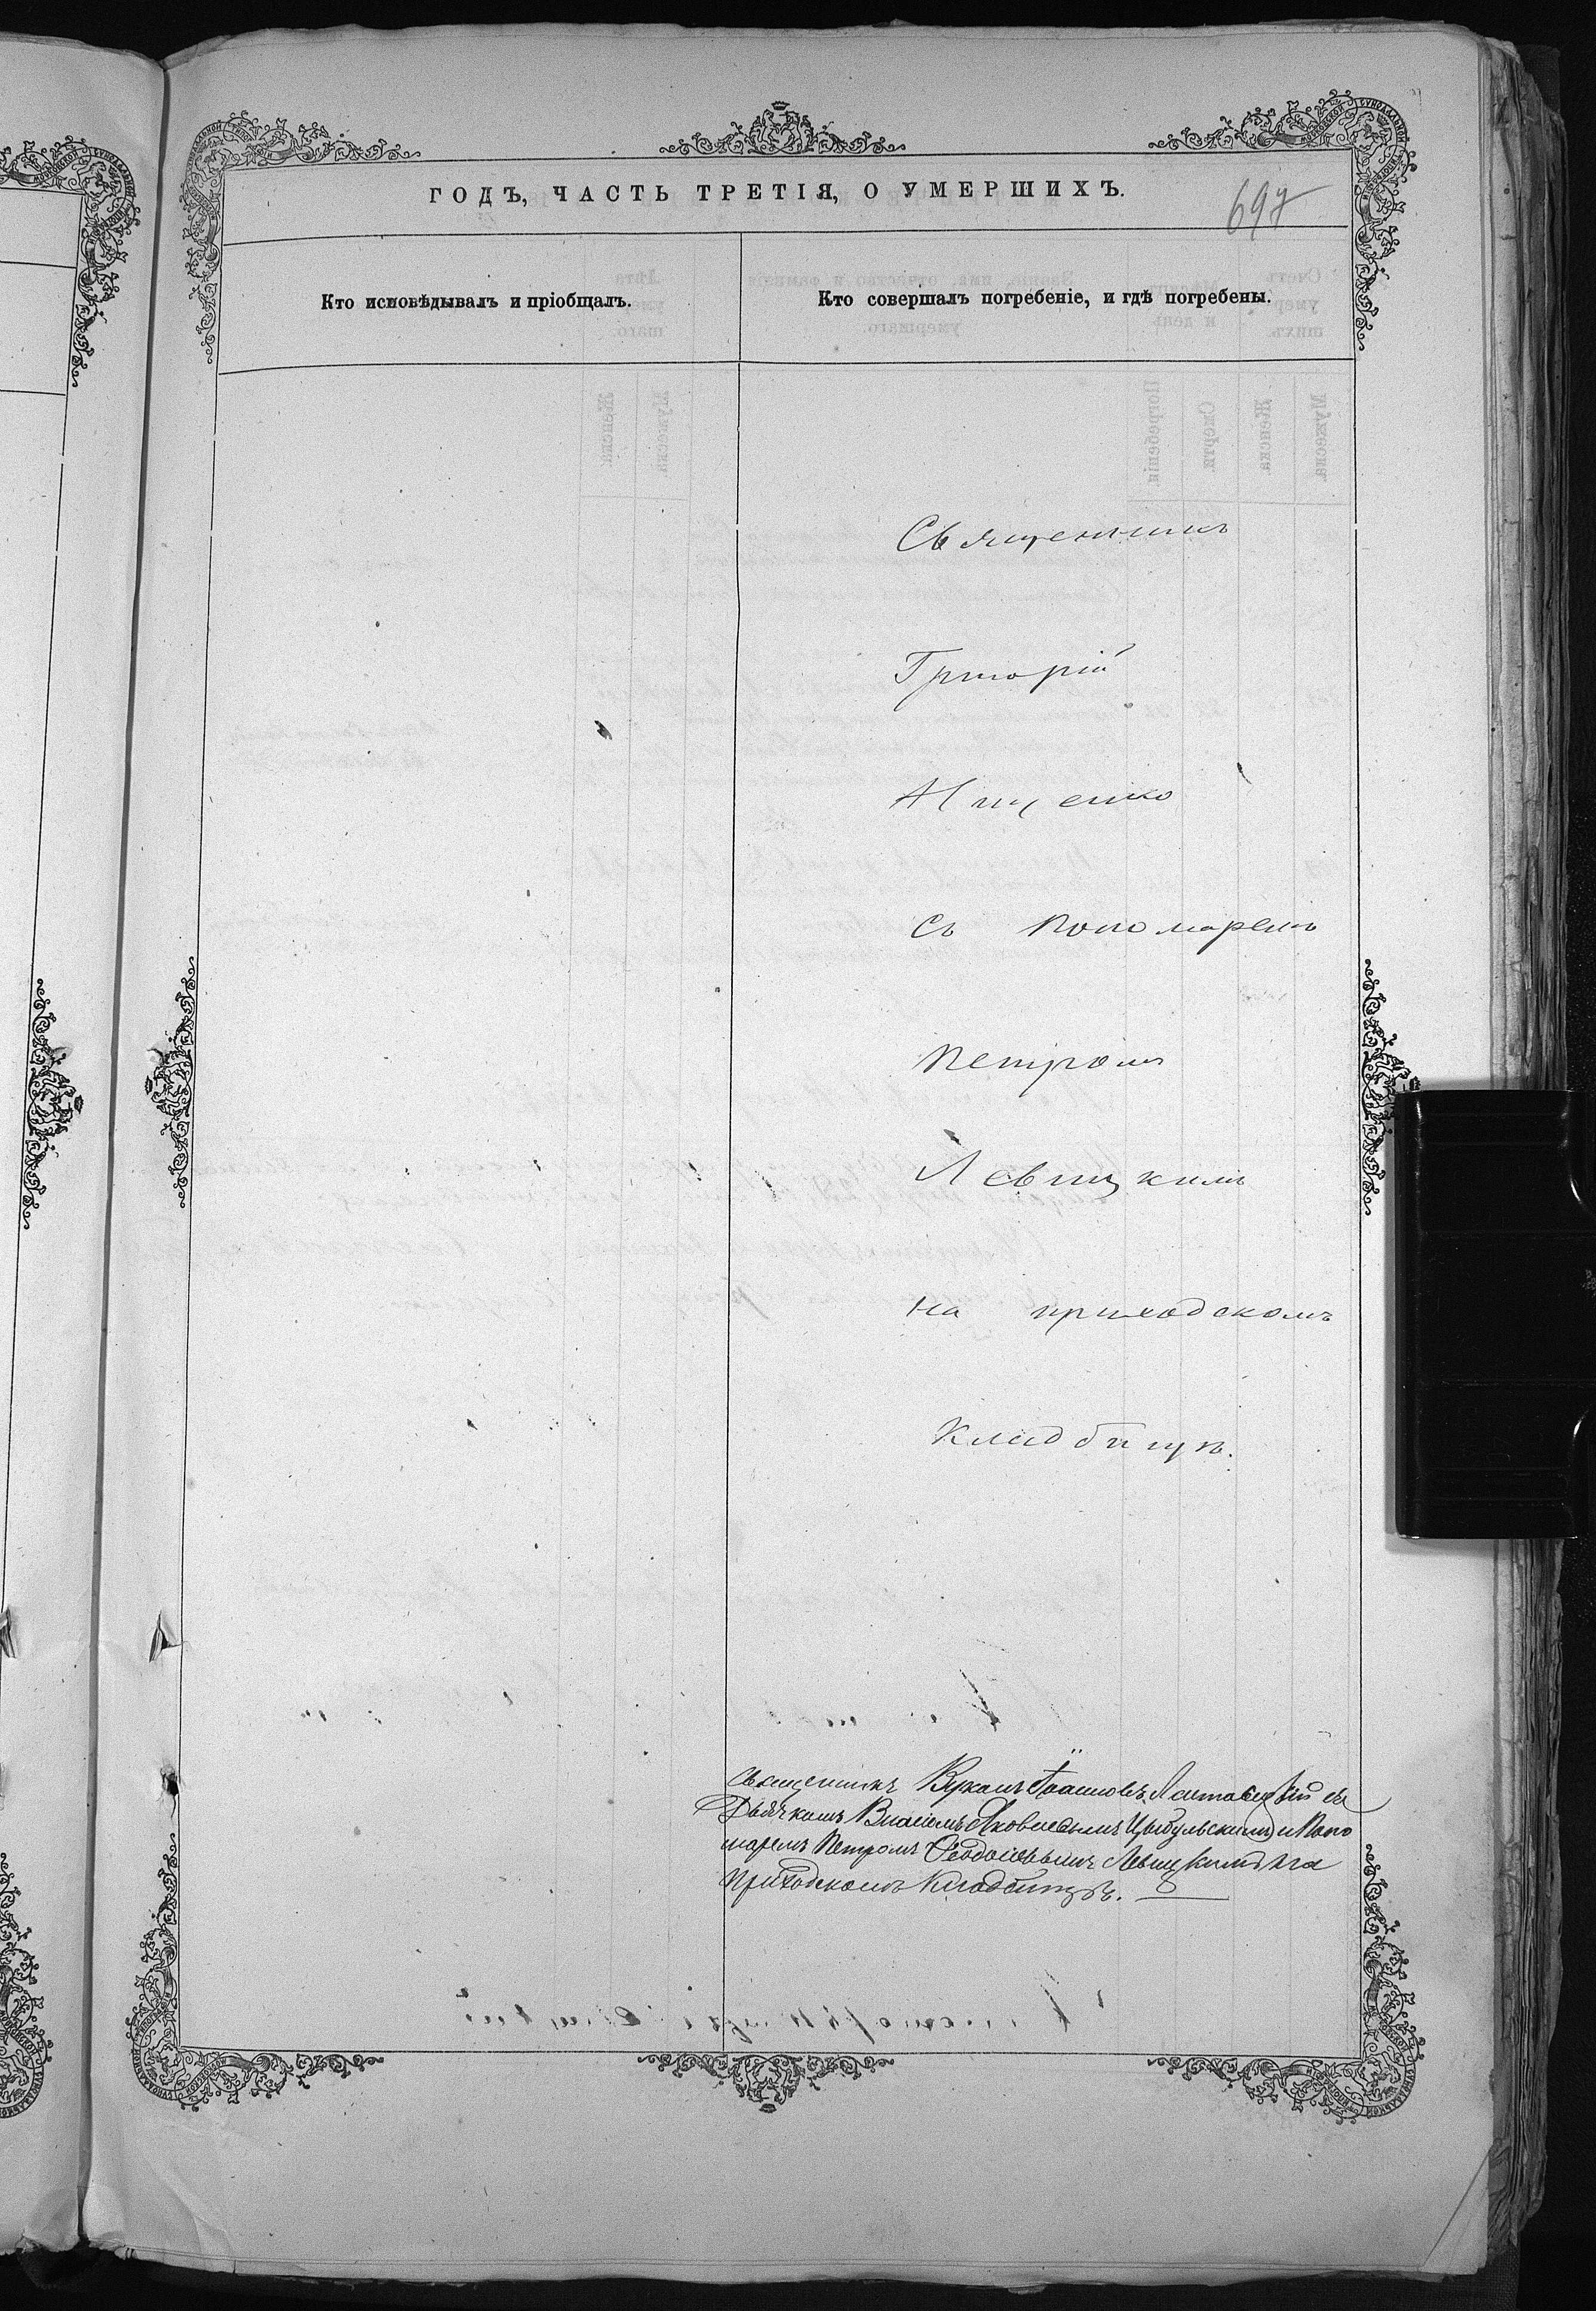 ГОДЪ, ЧАСТЬ ТРЕТІЯ, О УМЕРШИХЪ.
697
Кто исповѣдывалъ и пріобщалъ.
Кто совершалъ погребеніе, и гдѣ погребены.
Священникъ
Григорій
съ Пономаремъ
Петромъ
Левицкимъ
на приходскомъ
Кладбищѣ.
Священникъ Іоанновъ съ
Дьячкомъ Яковлевымъ Цыбульскимъ и Поно
маремъ Петромъ Ѳеодосіевымъ Левицкимъ на
Приходскомъ Кладбищѣ.